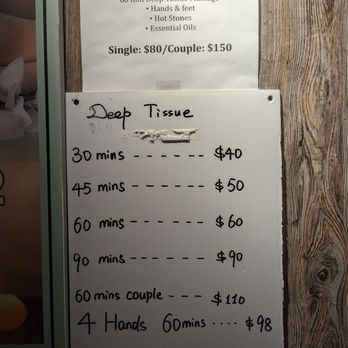 60 min Deep Tissue Massage
• Hands & feet
• Hot Stones
• Essential Oils
Single: $80/Couple: $150
Deep Tissue
30 mins - - - - - - $40
45 mins - - - - - - $50
60 mins - - - - - - $60
90 mins - - - - - - $90
60 mins couple - - - $110
4 Hands 60mins .... $98